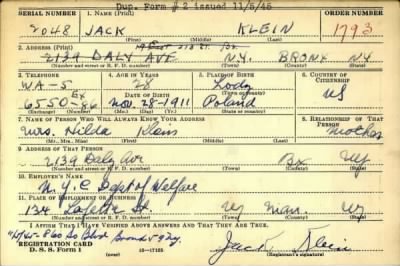 Dup. Form #2 issued 11/5/45
SERIAL NUMBER 1. NAME (Print) ORDER NUMBER
2048 JACK KLEIN 1793
(First) (Middle) (Last)
2. ADDRESS (Print)
2139 DALY AVE N.Y. BRONX NY
(Number and street or R. F. D. number) (Town) (County) (State)
3. TELEPHONE 4. AGE IN YEARS 5. PLACE OF BIRTH 6. COUNTRY OF CITIZENSHIP
WA-5 28 Lodz
6550-Ex 86 Nov. 28-1911 Poland US
(Exchange) (Number) (Mo.) (Day) (Yr.) (State or country)
7. NAME OF PERSON WHO WILL ALWAYS KNOW YOUR ADDRESS 8. RELATIONSHIP OF THAT PERSON
Mrs. Hilda Klein Mother
(Mr., Mrs., Miss) (First) (Middle) (Last)
9. ADDRESS OF THAT PERSON
2139 Daly Ave Bx NY
(Number and street or R. F. D. number) (Town) (County) (State)
10. EMPLOYER'S NAME
N.Y.C Dept of Welfare
11. PLACE OF EMPLOYMENT OR BUSINESS
134 Lafayette St. NY Man. NY
(Number and street or R. F. D. number) (Town) (County) (State)
I AFFIRM THAT I HAVE VERIFIED ABOVE ANSWERS AND THAT THEY ARE TRUE.
REGISTRATION CARD
D. S. S. Form 1 16-17105 Jack Klein
(Registrant's signature)